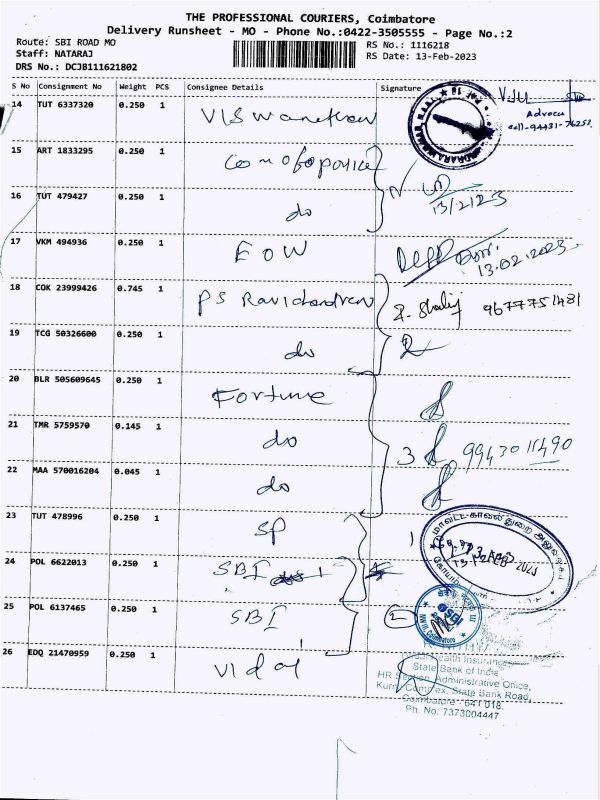 THE PROFESSIONAL COURIERS, Coimbatore
Delivery Runsheet - MO - Phone No.:0422-3505555 - Page No.:2
Route: SBI ROAD MO RS No.: 1116218
Staff: NATARAJ RS Date: 13-Feb-2023
DRS No.: DCJB111621802
S No Consignment No Weight PCS Consignee Details Signature
14 TUT 6337320 0.250 1 Viswanathan
Advocate
cell-94431-76252
15 ART 1833295 0.250 1
16 TUT 479427 0.250 1 do 13/2/23
17 VKM 494936 0.250 1 EOW 13.02.2023
18 COK 23999426 0.745 1 PS Ravichandran 9677751481
19 TCG 50326600 0.250 1 do
20 BLR 505609645 0.250 1 Fortune
21 TMR 5759570 0.145 1 do 3 9943011490
22 MAA 570016204 0.045 1 do
23 TUT 478996 0.250 1 SP
மாவட்ட காவல் துறை அலுவலகம்
24 POL 6622013 0.250 1 SBI
25 POL 6137465 0.250 1 SBI 2
SBI
Coimbatore
26 EDQ 21470959 0.250 1 Vidal
Health Insurance
State Bank of India
HR Section, Administrative Office,
Complex, State Bank Road,
Coimbatore - 641 018.
Ph. No: 7373004447